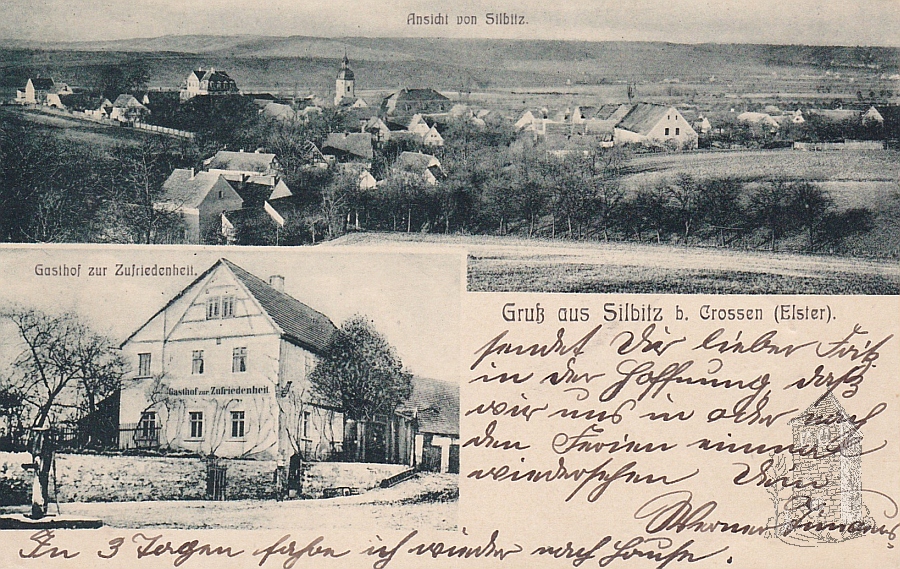 Ansicht von Silbitz.
Gasthof zur Zufriedenheit.
Gasthof zur Zufriedenheit
Gruß aus Silbitz b. Crossen (Elster).
sendet Dir lieber Fritz
in der Hoffnung daß
wir uns in oder nach
den Ferien einmal
wiedersehen Dein
Werner
In 3 Tagen fahre ich wieder nach Hause.